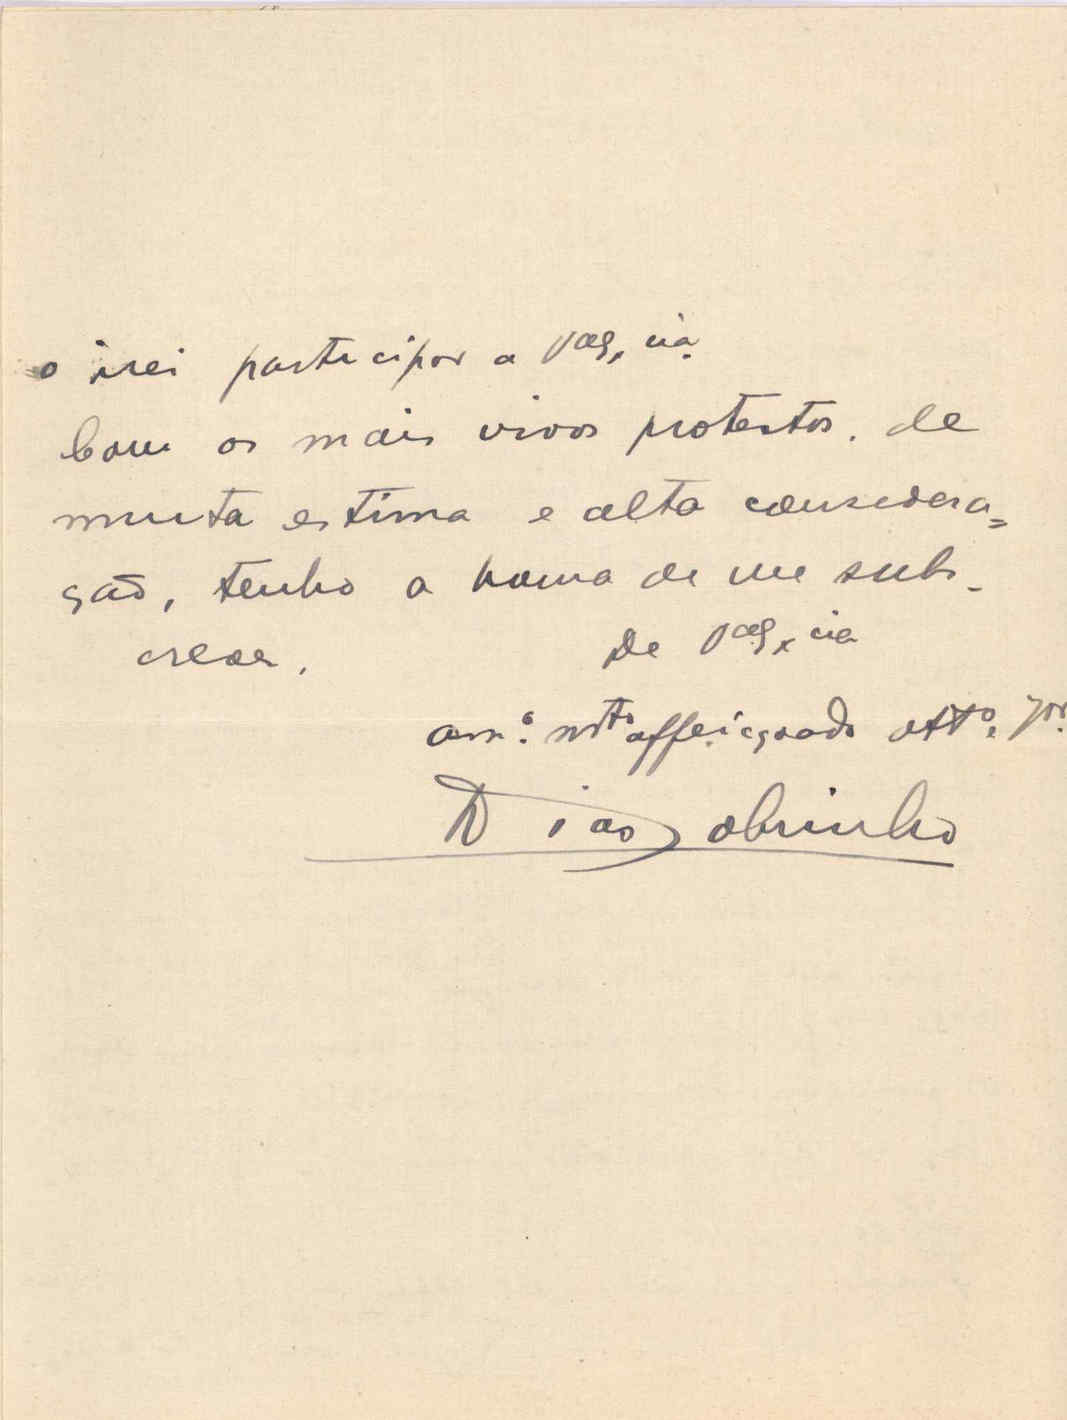 o irei participar a V. Ex.cia.
Com os mais vivos protestos de
muita estima e alta considera=
ção, tenho a honra de me subs-
crever.
De V. Ex.cia
am.º mto affeiçoado att.º
Dias Sobrinho